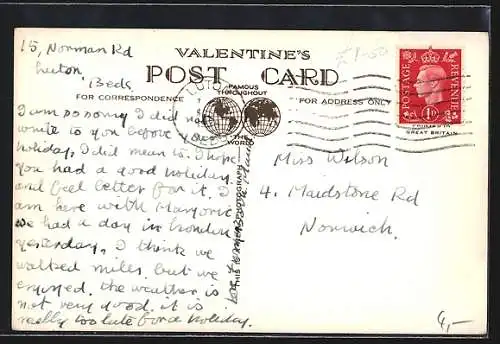 15, Norman Rd
Luton,
Beds.
VALENTINE'S
POST CARD
FAMOUS THROUGHOUT
THE WORLD
FOR CORRESPONDENCE
FOR ADDRESS ONLY
£1-50
POSTAGE
REVENUE
1D
PRINTED IN
GREAT BRITAIN
I am so sorry I did not
write to you before your
holiday, I did mean to. I hope
you had a good holiday
and feel better for it. I
am here with Marjorie
we had a day in London
yesterday, I think we
walked miles, but we
enjoyed. the weather is
not very good, it is
really too late for a holiday.
Love
THIS IS A REAL PHOTOGRAPH
Miss Wilson
4. Maidstone Rd
Norwich.
4,-